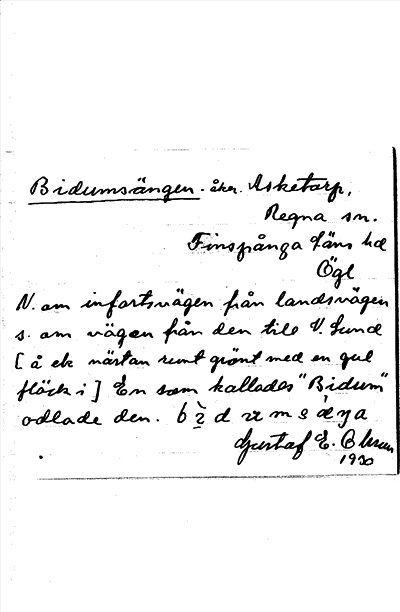 Bidumsängen. åker. Asketorp,
Regna sn.
Finspånga läns hd
Ögl
N. om infartsvägen från landsvägen
s. om vägen från den till V. Lund
[å ek nästan runt grönt med en gul
fläck i] En som kallades "Bidum"
odlade den.
Gustaf E.
1930